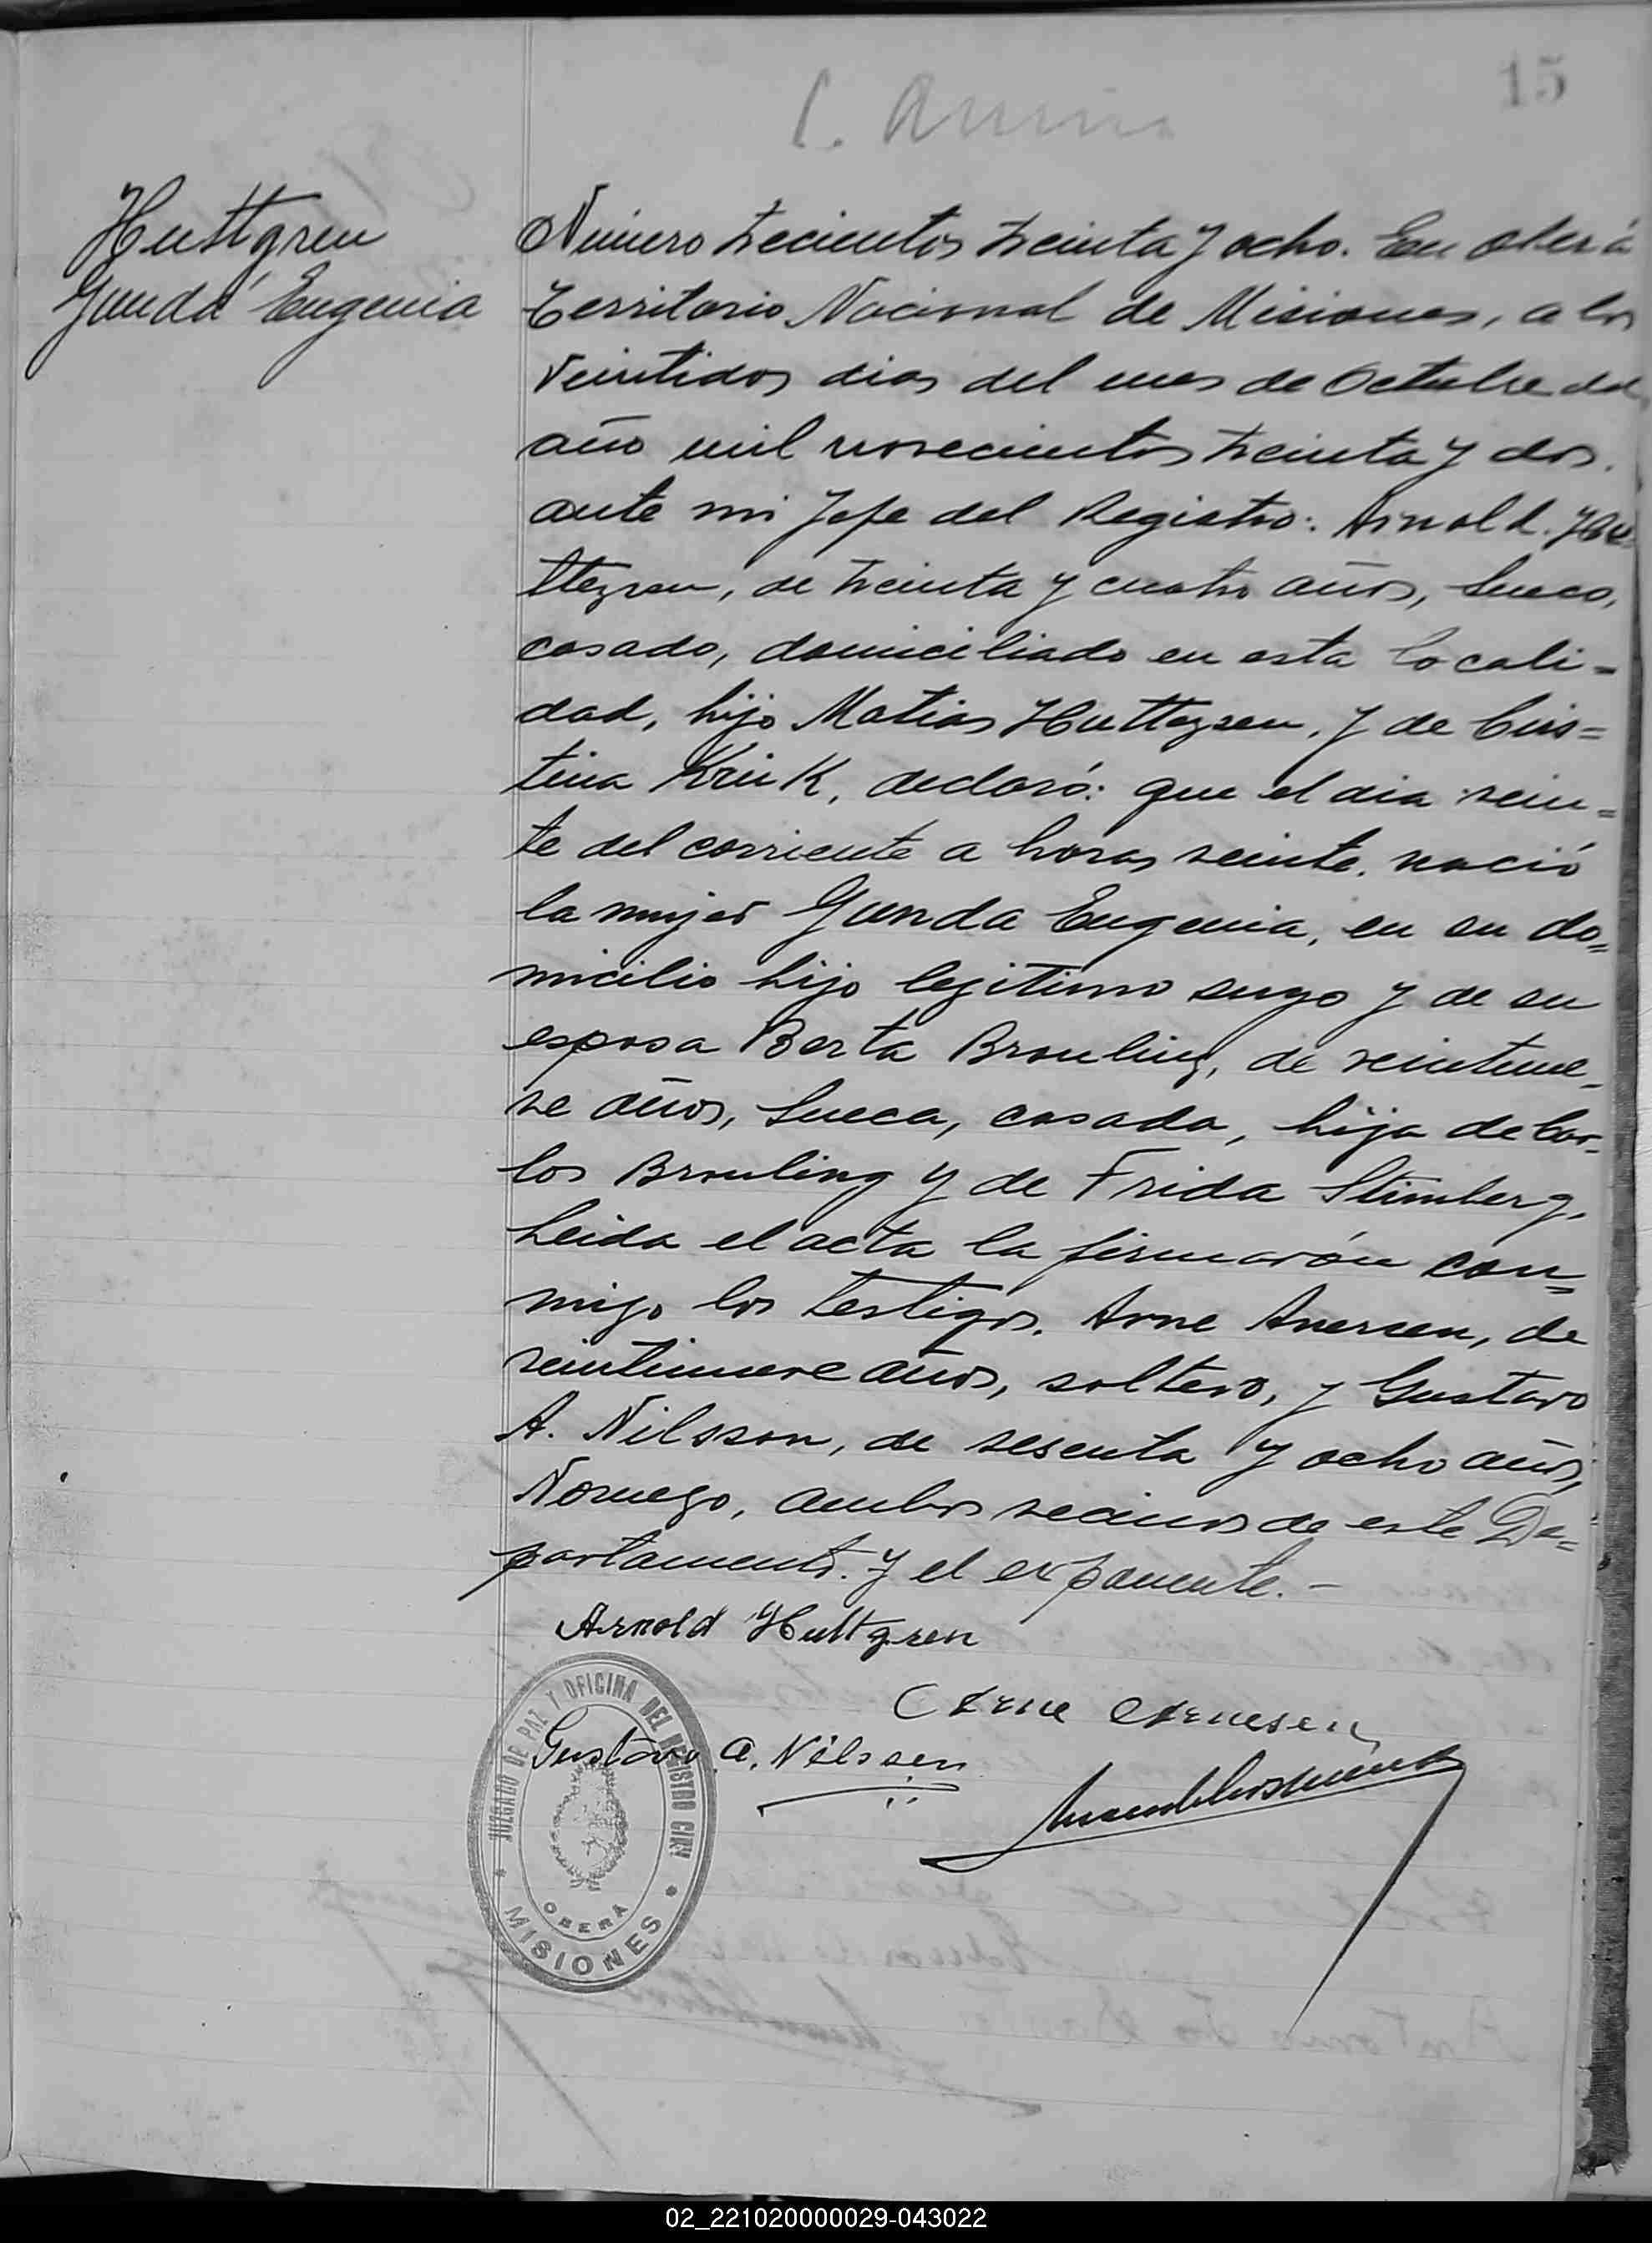 15
Huttgren
Gunda Eugenia
Número trecientos treinta y ocho. En Oberá
Territorio Nacional de Misiones, a los
veintidos dias del mes de Octubre del
año mil novecientos treinta y dos.
ante mi Jefe del Registro: Arnold. Hu
ttgren, de treinta y cuatro años, Sueco,
casado, domiciliado en esta locali=
dad, hijo Matias Huttgren, y de Cris=
tina Krink, declaró: que el dia vein=
te del corriente a horas veinte, nació
la mujer Gunda Eugenia, en su do=
micilio hijo legitimo suyo y de su
esposa Berta Brouling, de veintinue-
ve años, Sueca, casada, hija de Car-
los Brouling y de Frida Stimberg.
Leida el acta la firmarón con=
migo los testigos. Arne Anersen, de
veintinueve años, soltero, y Gustavo
A. Nilsson, de sesenta y ocho años,
Noruego, ambos vecinos de este De=
partamento. y el exponente.-
Arnold Hultgren
Arne Arnesen
Gustavo A. Nilssen
JUZGADO DE PAZ Y OFICINA DEL REGISTRO CIVIL
OBERÁ
* MISIONES *
02_221020000029-043022